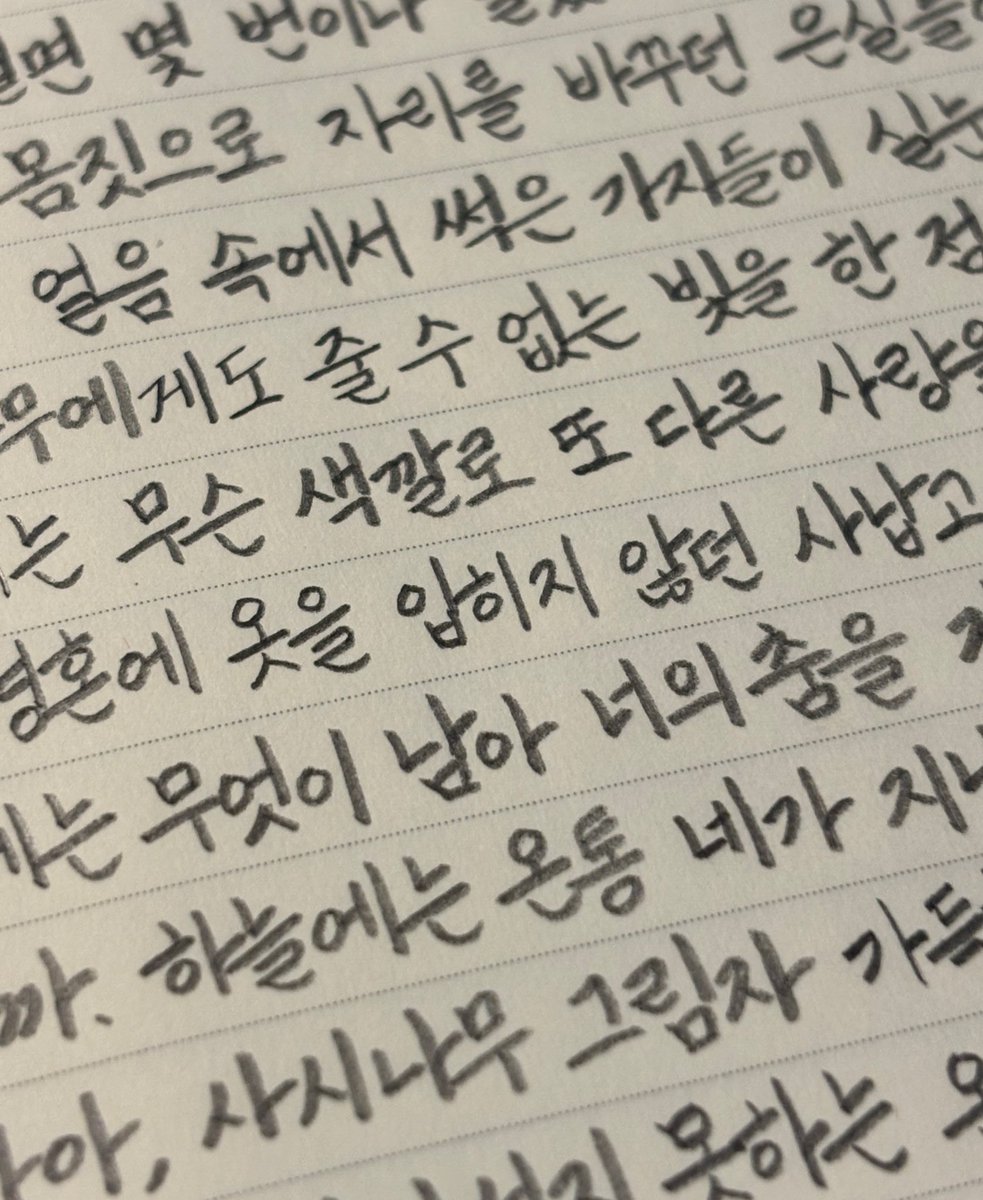 몇 번이나
몸짓으로 자리를 바꾸던 은실들
얼음 속에서 썩은 가지들이 실눈
줄 수 없는 빛을 한 점
무슨 색깔로 또 다른 사랑을
영혼에 옷을 입히지 않던 사납고
무엇이 남아 너의 춤을
까. 하늘에는 온통 네가 지나
아, 사시나무 그림자 가득
못하는